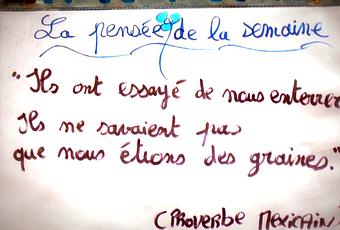 La pensée de la semaine
"Ils ont essayé de nous enterrer
Ils ne savaient pas
que nous étions des graines."
(Proverbe Mexicain